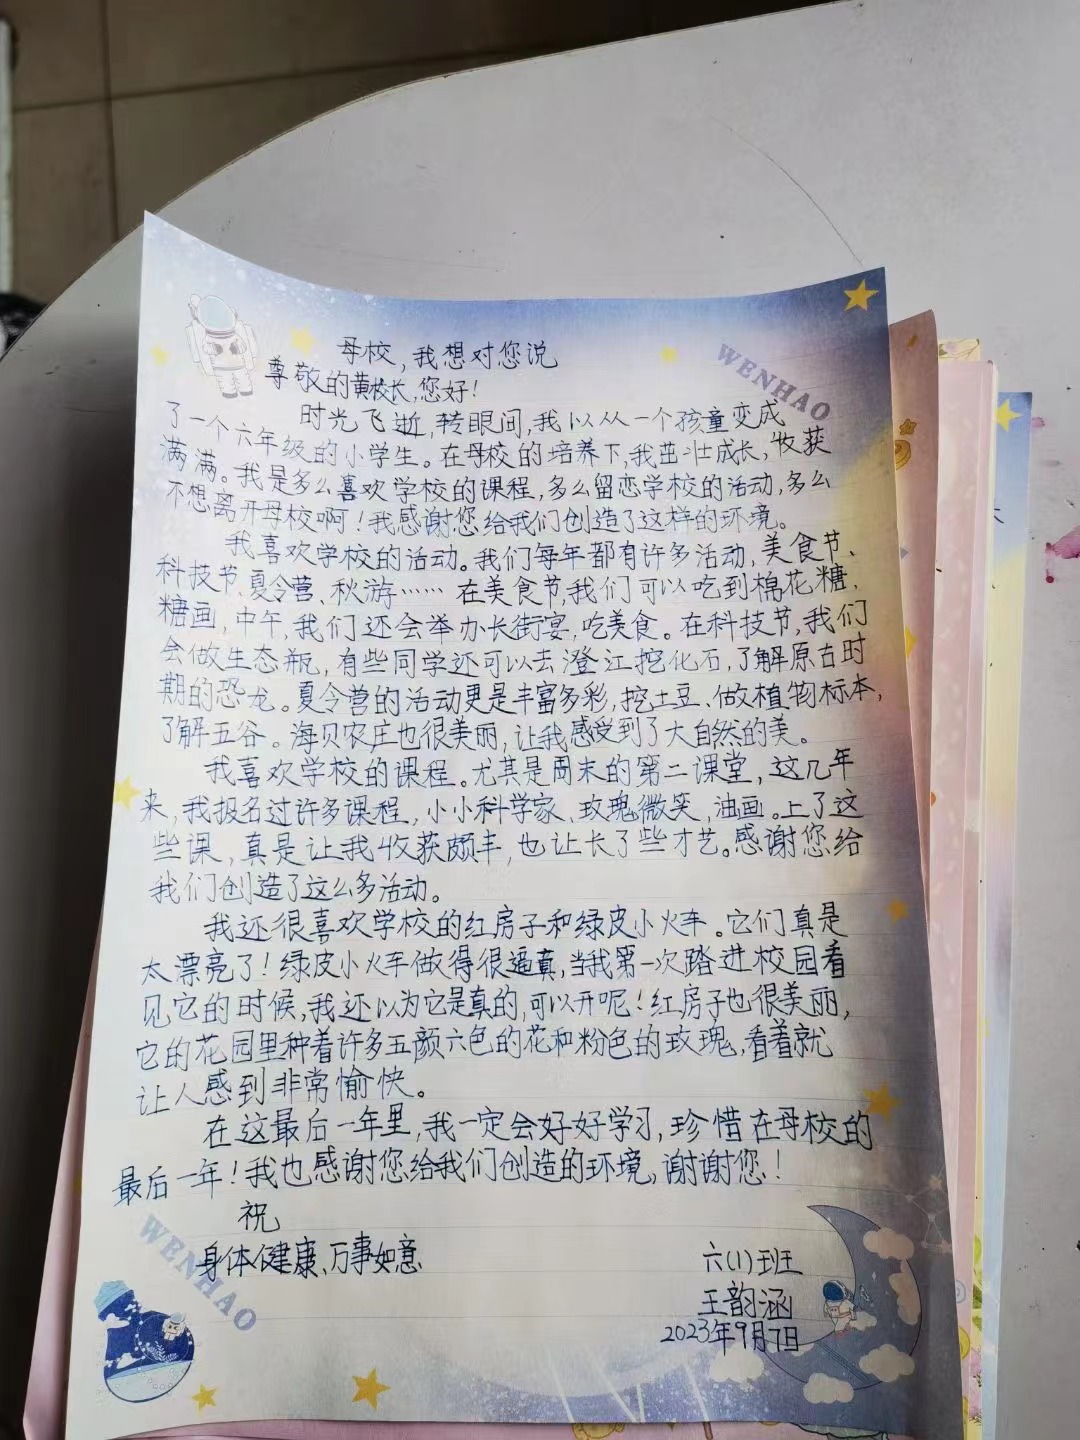 母校，我想对您说
WENHAO
尊敬的黄校长，您好！
时光飞逝，转眼间，我以从一个孩童变成
了一个六年级的小学生。在母校的培养下，我茁壮成长，收获
满满。我是多么喜欢学校的课程，多么留恋学校的活动，多么
不想离开母校啊！我感谢您给我们创造了这样的环境。
我喜欢学校的活动。我们每年都有许多活动，美食节、
科技节、夏令营、秋游……在美食节，我们可以吃到棉花糖、
糖画，中午，我们还会举办长街宴，吃美食。在科技节，我们
会做生态瓶，有些同学还可以去澄江挖化石，了解原古时
期的恐龙。夏令营的活动更是丰富多彩，挖土豆、做植物标本，
了解五谷。海贝农庄也很美丽，让我感受到了大自然的美。
我喜欢学校的课程。尤其是周末的第二课堂，这几年
来，我报名过许多课程，小小科学家、玫瑰微笑，油画。上了这
些课，真是让我收获颇丰，也让长了些才艺。感谢您给
我们创造了这么多活动。
我还很喜欢学校的红房子和绿皮小火车。它们真是
太漂亮了！绿皮小火车做得很逼真，当我第一次踏进校园看
见它的时候，我还以为它是真的，可以开呢！红房子也很美丽，
它的花园里种着许多五颜六色的花和粉色的玫瑰，看着就
让人感到非常愉快。
在这最后一年里，我一定会好好学习，珍惜在母校的
最后一年！我也感谢您给我们创造的环境，谢谢您！
祝
身体健康、万事如意
WENHAO
六(1)班
王韵涵
2023年9月7日